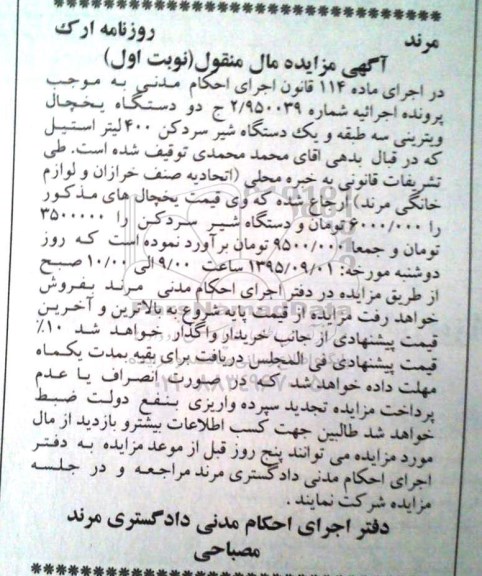 مرند روزنامه ارک
آگهی مزایده مال منقول(نوبت اول)
در اجرای ماده ۱۱۴ قانون اجرای احکام مدنی به موجب
پرونده اجرائیه شماره ۲/۹۵۰۰۳۹ ج دو دستگاه یخچال
ویترینی سه طبقه و یک دستگاه شیر سردکن ۴۰۰ لیتر استیل
که در قبال بدهی اقای محمد محمدی توقیف شده است. طی
تشریفات قانونی به خبره محلی (اتحادیه صنف خرازان و لوازم
خانگی مرند) ارجاع شده که وی قیمت یخچال های مذکور
را ۶۰۰۰/۰۰۰ تومان و دستگاه شیر سردکن را ۳۵۰۰۰۰۰
تومان و جمعا ۹۵۰۰/۰۰۰ تومان برآورد نموده است که روز
دوشنبه مورخه: ۱۳۹۵/۰۹/۰۱ ساعت ۹/۰۰ الی ۱۰/۰۰ صبح
از طریق مزایده در دفتر اجرای احکام مدنی مرند بفروش
خواهد رفت مزایده از قیمت پایه شروع به بالاترین و آخرین
قیمت پیشنهادی از جانب خریدار واگذار خواهد شد ۱۰٪
قیمت پیشنهادی فی المجلس دریافت برای بقیه بمدت یکماه
مهلت داده خواهد شد که در صورت انصراف یا عدم
پرداخت مزایده تجدید سپرده واریزی بنفع دولت ضبط
خواهد شد طالبین جهت کسب اطلاعات بیشترو بازدید از مال
مورد مزایده می توانند پنج روز قبل از موعد مزایده به دفتر
اجرای احکام مدنی دادگستری مرند مراجعه و در جلسه
مزایده شرکت نمایند .
دفتر اجرای احکام مدنی دادگستری مرند
مصباحی